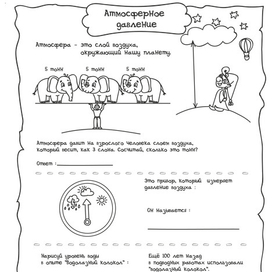 Атмосферное
давление
Атмосфера - это слой воздуха,
окружающий нашу планету.
5 тонн 5 тонн 5 тонн
Атмосфера давит на взрослого человека слоем воздуха,
который весит, как 3 слона. Сосчитай, сколько это тонн?
Ответ :
Это прибор, который измеряет
давление воздуха :
Он называется :
Нарисуй уровень воды
в опыте "Водолазный колокол" :
Ещё 100 лет назад
в подводных работах использовали
"водолазный колокол".